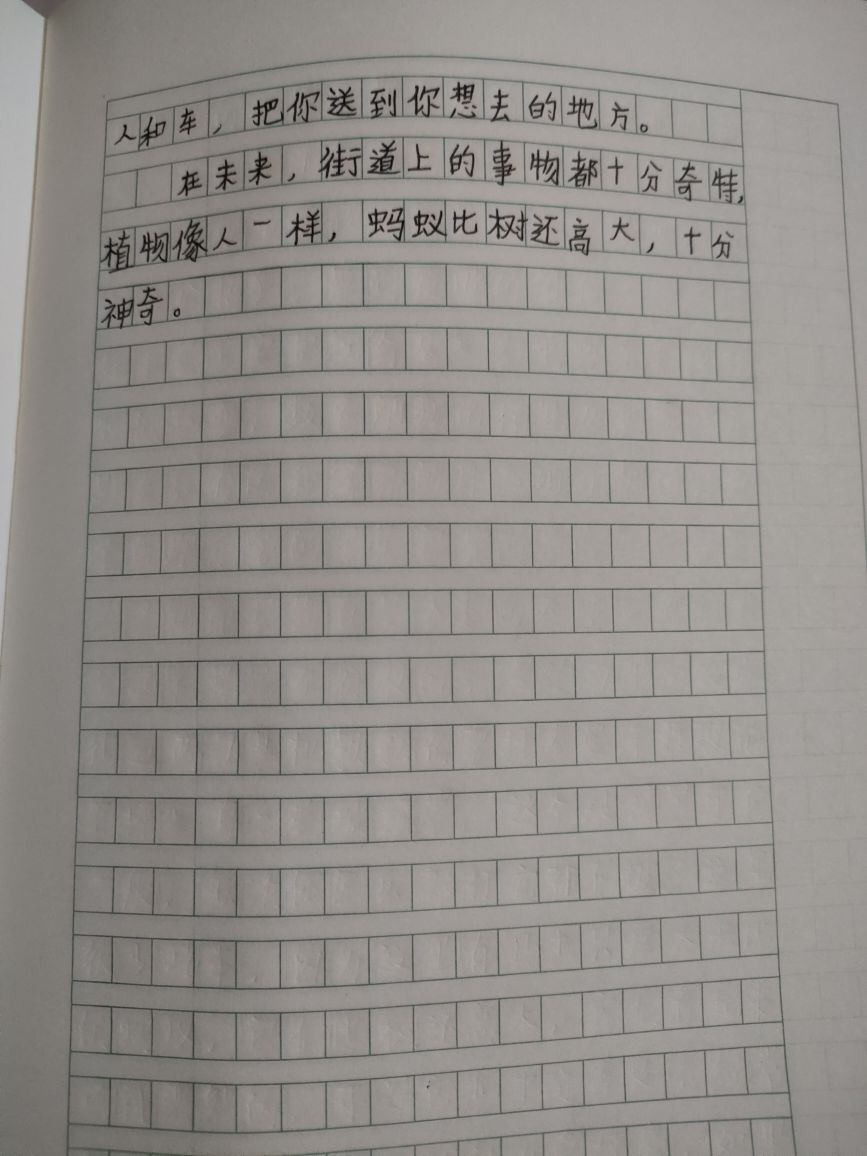 人和车，把你送到你想去的地方。
在未来，街道上的事物都十分奇特，
植物像人一样，蚂蚁比树还高大，十分
神奇。